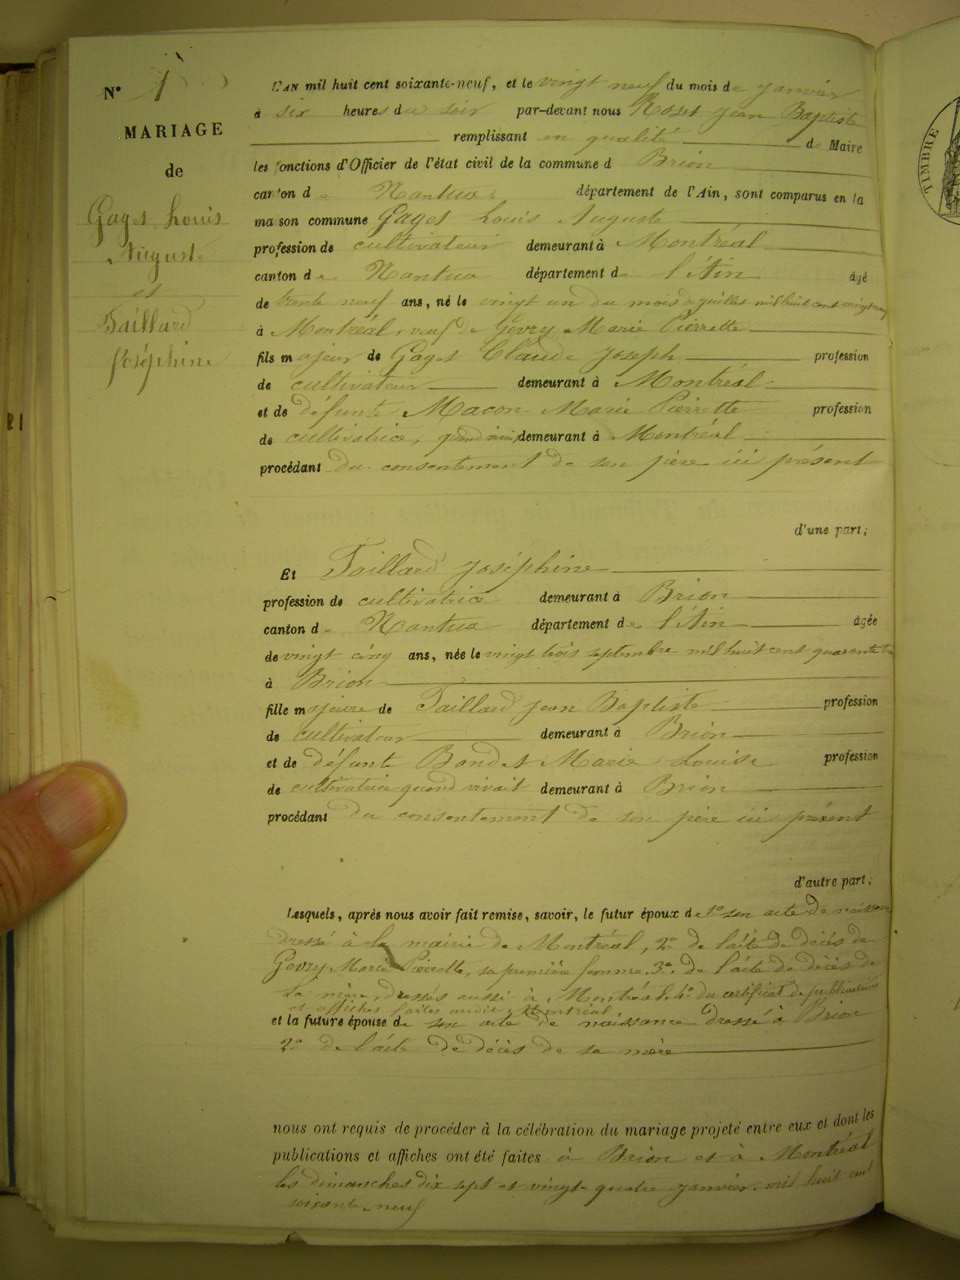 N° 1
MARIAGE
de
Gagos Louis
August
et
Taillard
Joséphine
L'AN mil huit cent soixante-neuf, et le vingt neuf du mois de janvier
à six heures du soir par-devant nous Roset Jean Baptiste
remplissant en qualité de Maire
les fonctions d'Officier de l'état civil de la commune d Brion
canton de Nantua département de l'Ain, sont comparus en la
maison commune Gagos Louis Auguste
profession de cultivateur demeurant à Montréal
canton de Nantua département de l'Ain âgé
de trente neuf ans, né le vingt un du mois de juillet mil huit cent vingt neuf
à Montréal, veuf de Gevry Marie Pierrette
fils majeur de Gagos Claude Joseph profession
de cultivateur demeurant à Montréal
et de défunte Macon Marie Pierrette profession
de cultivatrice, quand vivait demeurant à Montréal
procédant du consentement de son père ici présent
d'une part;
Et Taillard Joséphine
profession de cultivatrice demeurant à Brion
canton de Nantua département de l'Ain âgée
de vingt cinq ans, née le vingt trois septembre mil huit cent quarante trois
à Brion
fille majeure de Taillard Jean Baptiste profession
de cultivateur demeurant à Brion
et de défunte Bondet Marie Louise profession
de cultivatrice quand vivait demeurant à Brion
procédant du consentement de son père ici présent
d'autre part;
Lesquels, après nous avoir fait remise, savoir, le futur époux de 1° son acte de naissance
dressé à la mairie de Montréal, 2° de l'acte de décès de
Gevry Marie Pierrette, sa première femme, 3° de l'acte de décès de
sa mère dressés aussi à Montréal, 4° du certificat de publications
et affiches faites audit Montréal
et la future épouse de son acte de naissance dressé à Brion
2° de l'acte de décès de sa mère
nous ont requis de procéder à la célébration du mariage projeté entre eux et dont les
publications et affiches ont été faites à Brion et à Montréal
les dimanches dix sept et vingt quatre janvier mil huit cent
soixante neuf
TIMBRE